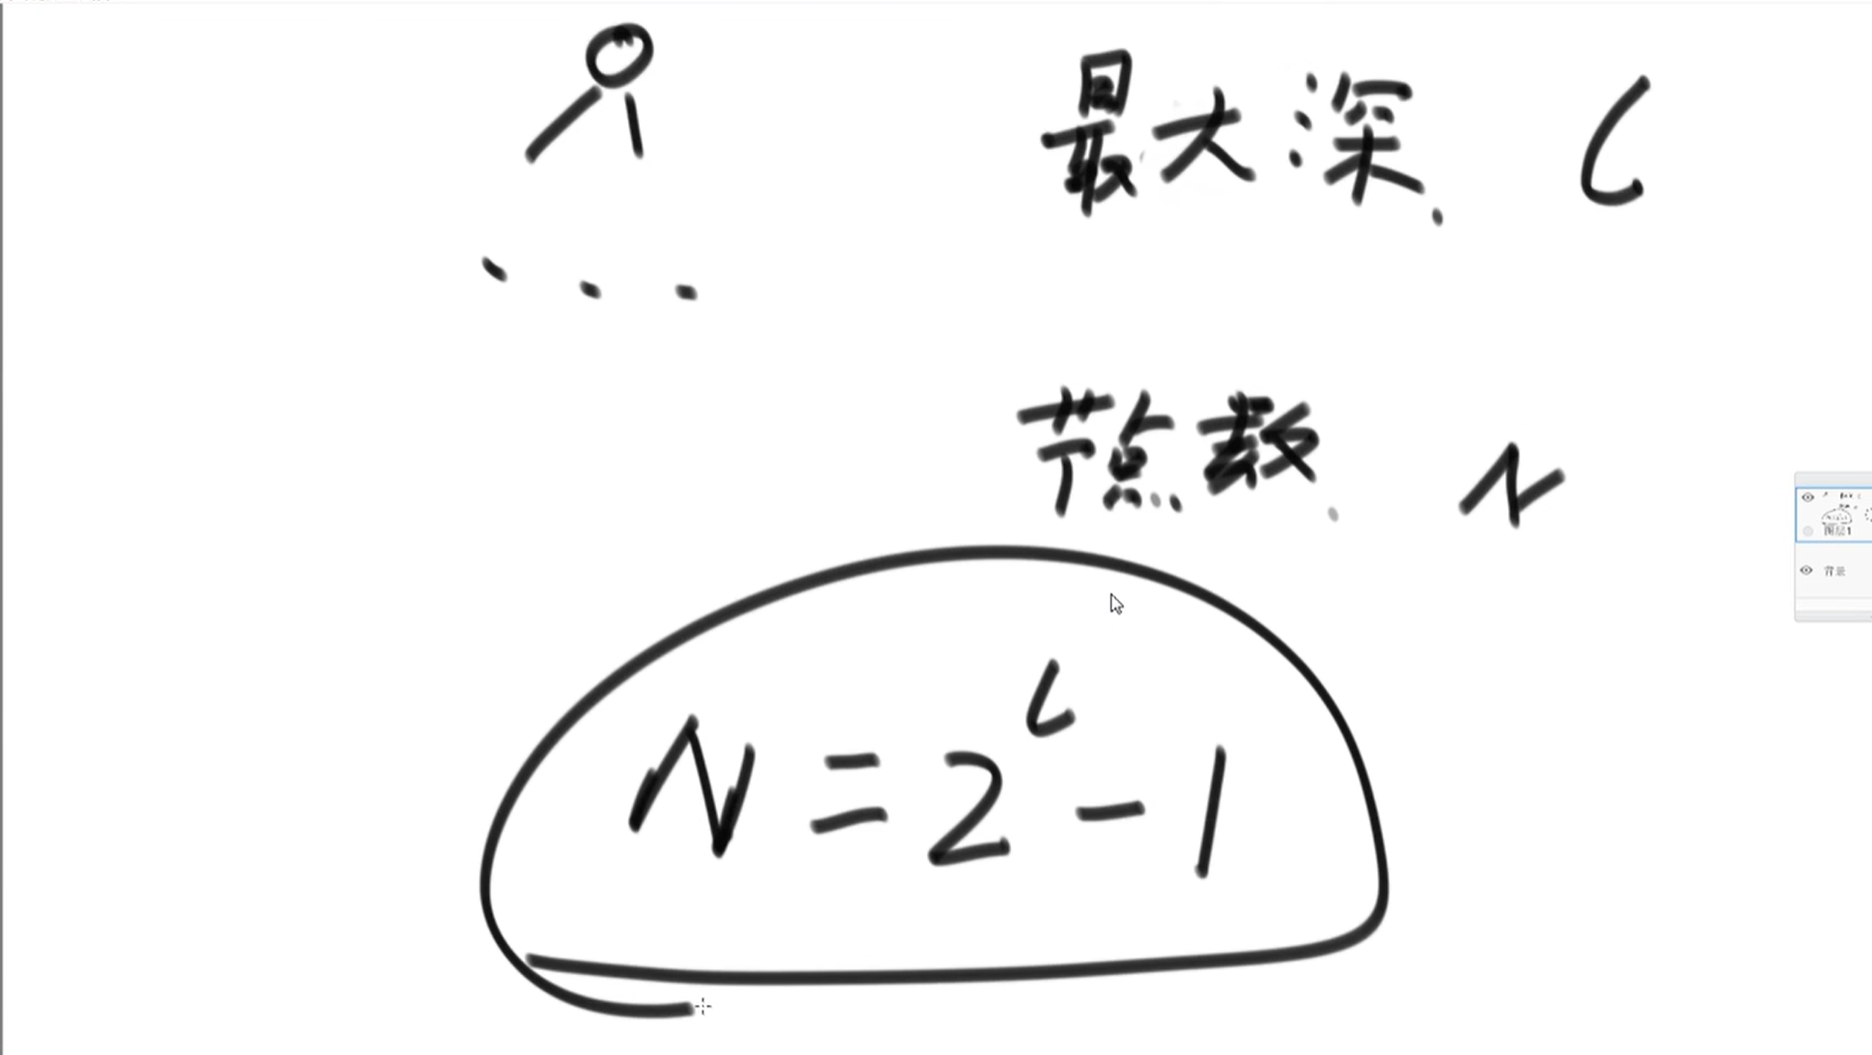 最大深. L
节点数. N
N = 2^L - 1
图层1
背景